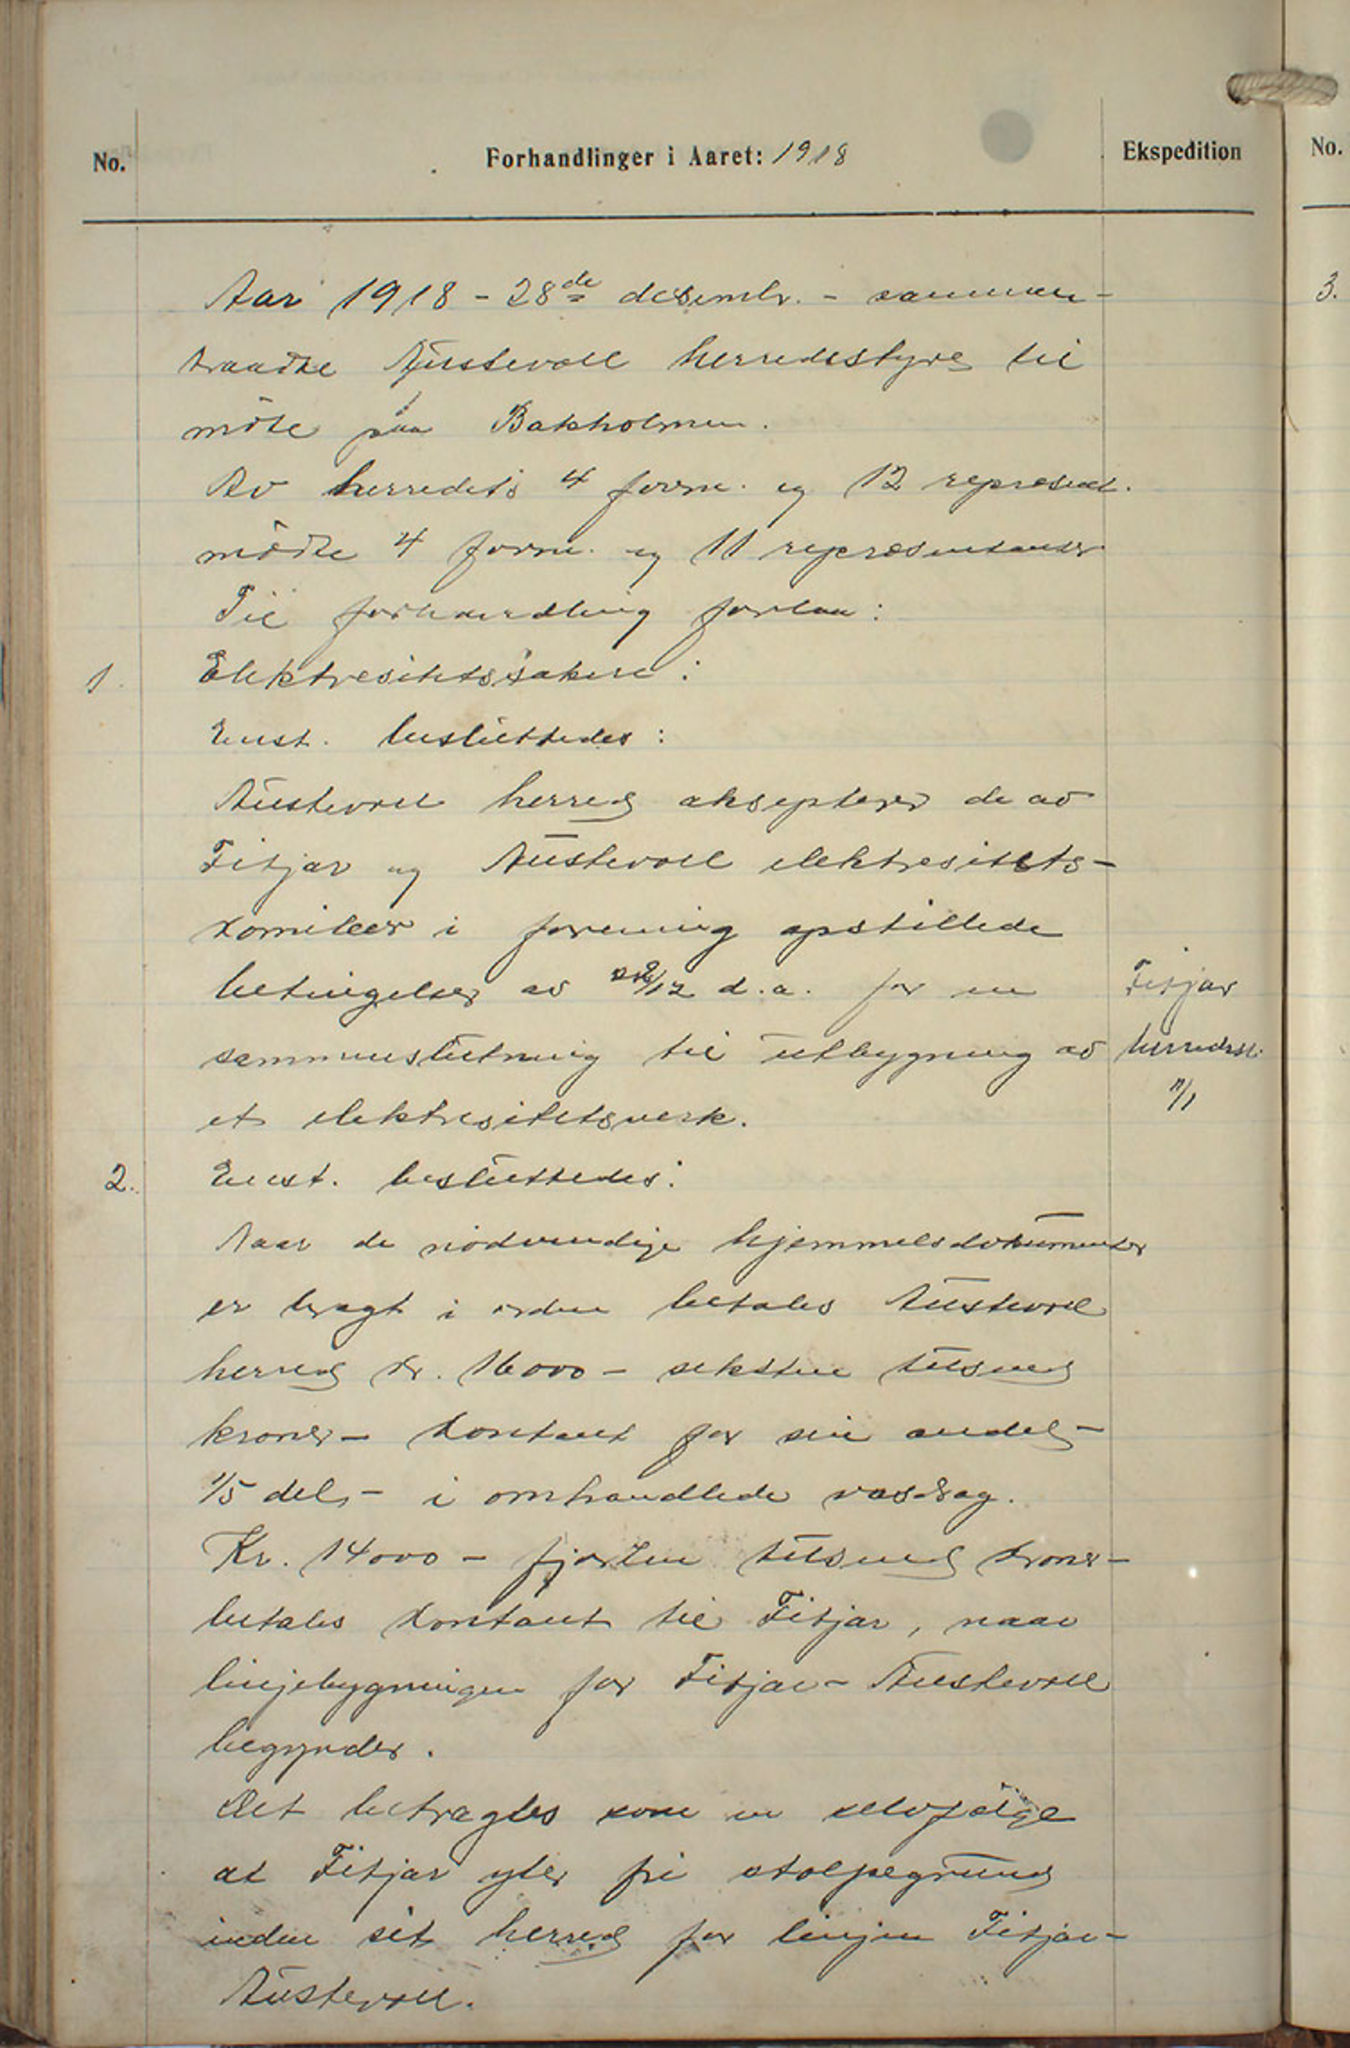 No.
Forhandlinger i Aaret: 1918
Ekspedition
No.
Aar 1918 - 28de desembr. - sammen-
traadte Austevoll herredsstyre til
møte paa Bakholmen.
Av herredets 4 form. og 12 represent.
mødte 4 form. og 11 representanter
Til forhandling forelaa:
1. Elektresitetssaken:
Enst. besluttedes:
Austevoll herred aksepterer de av
Fitjar og Austevoll elektresitets-
komiteer i forening opstillede
betingelser av /12 d.a. for en
sammenslutning til utbygning av
et elektresitetsverk.
Fitjar
herredsst.
2. Enst. besluttedes:
Naar de nødvendige hjemmelsdokumenter
er bragt i orden betales Austevoll
herred kr. 16000 - seksten tusend
kroner - kontant for sin andel -
1/5 del - i omhandlede vasdrag.
Kr. 14000 - fjorten tusend kroner -
betales kontant til Fitjar, naar
linjebygningen for Fitjar - Austevoll
begynder.
Det betragtes som en selvfølge
at Fitjar yter fri stolpegrund
inden sit herred for linjen Fitjar -
Austevoll.
3.